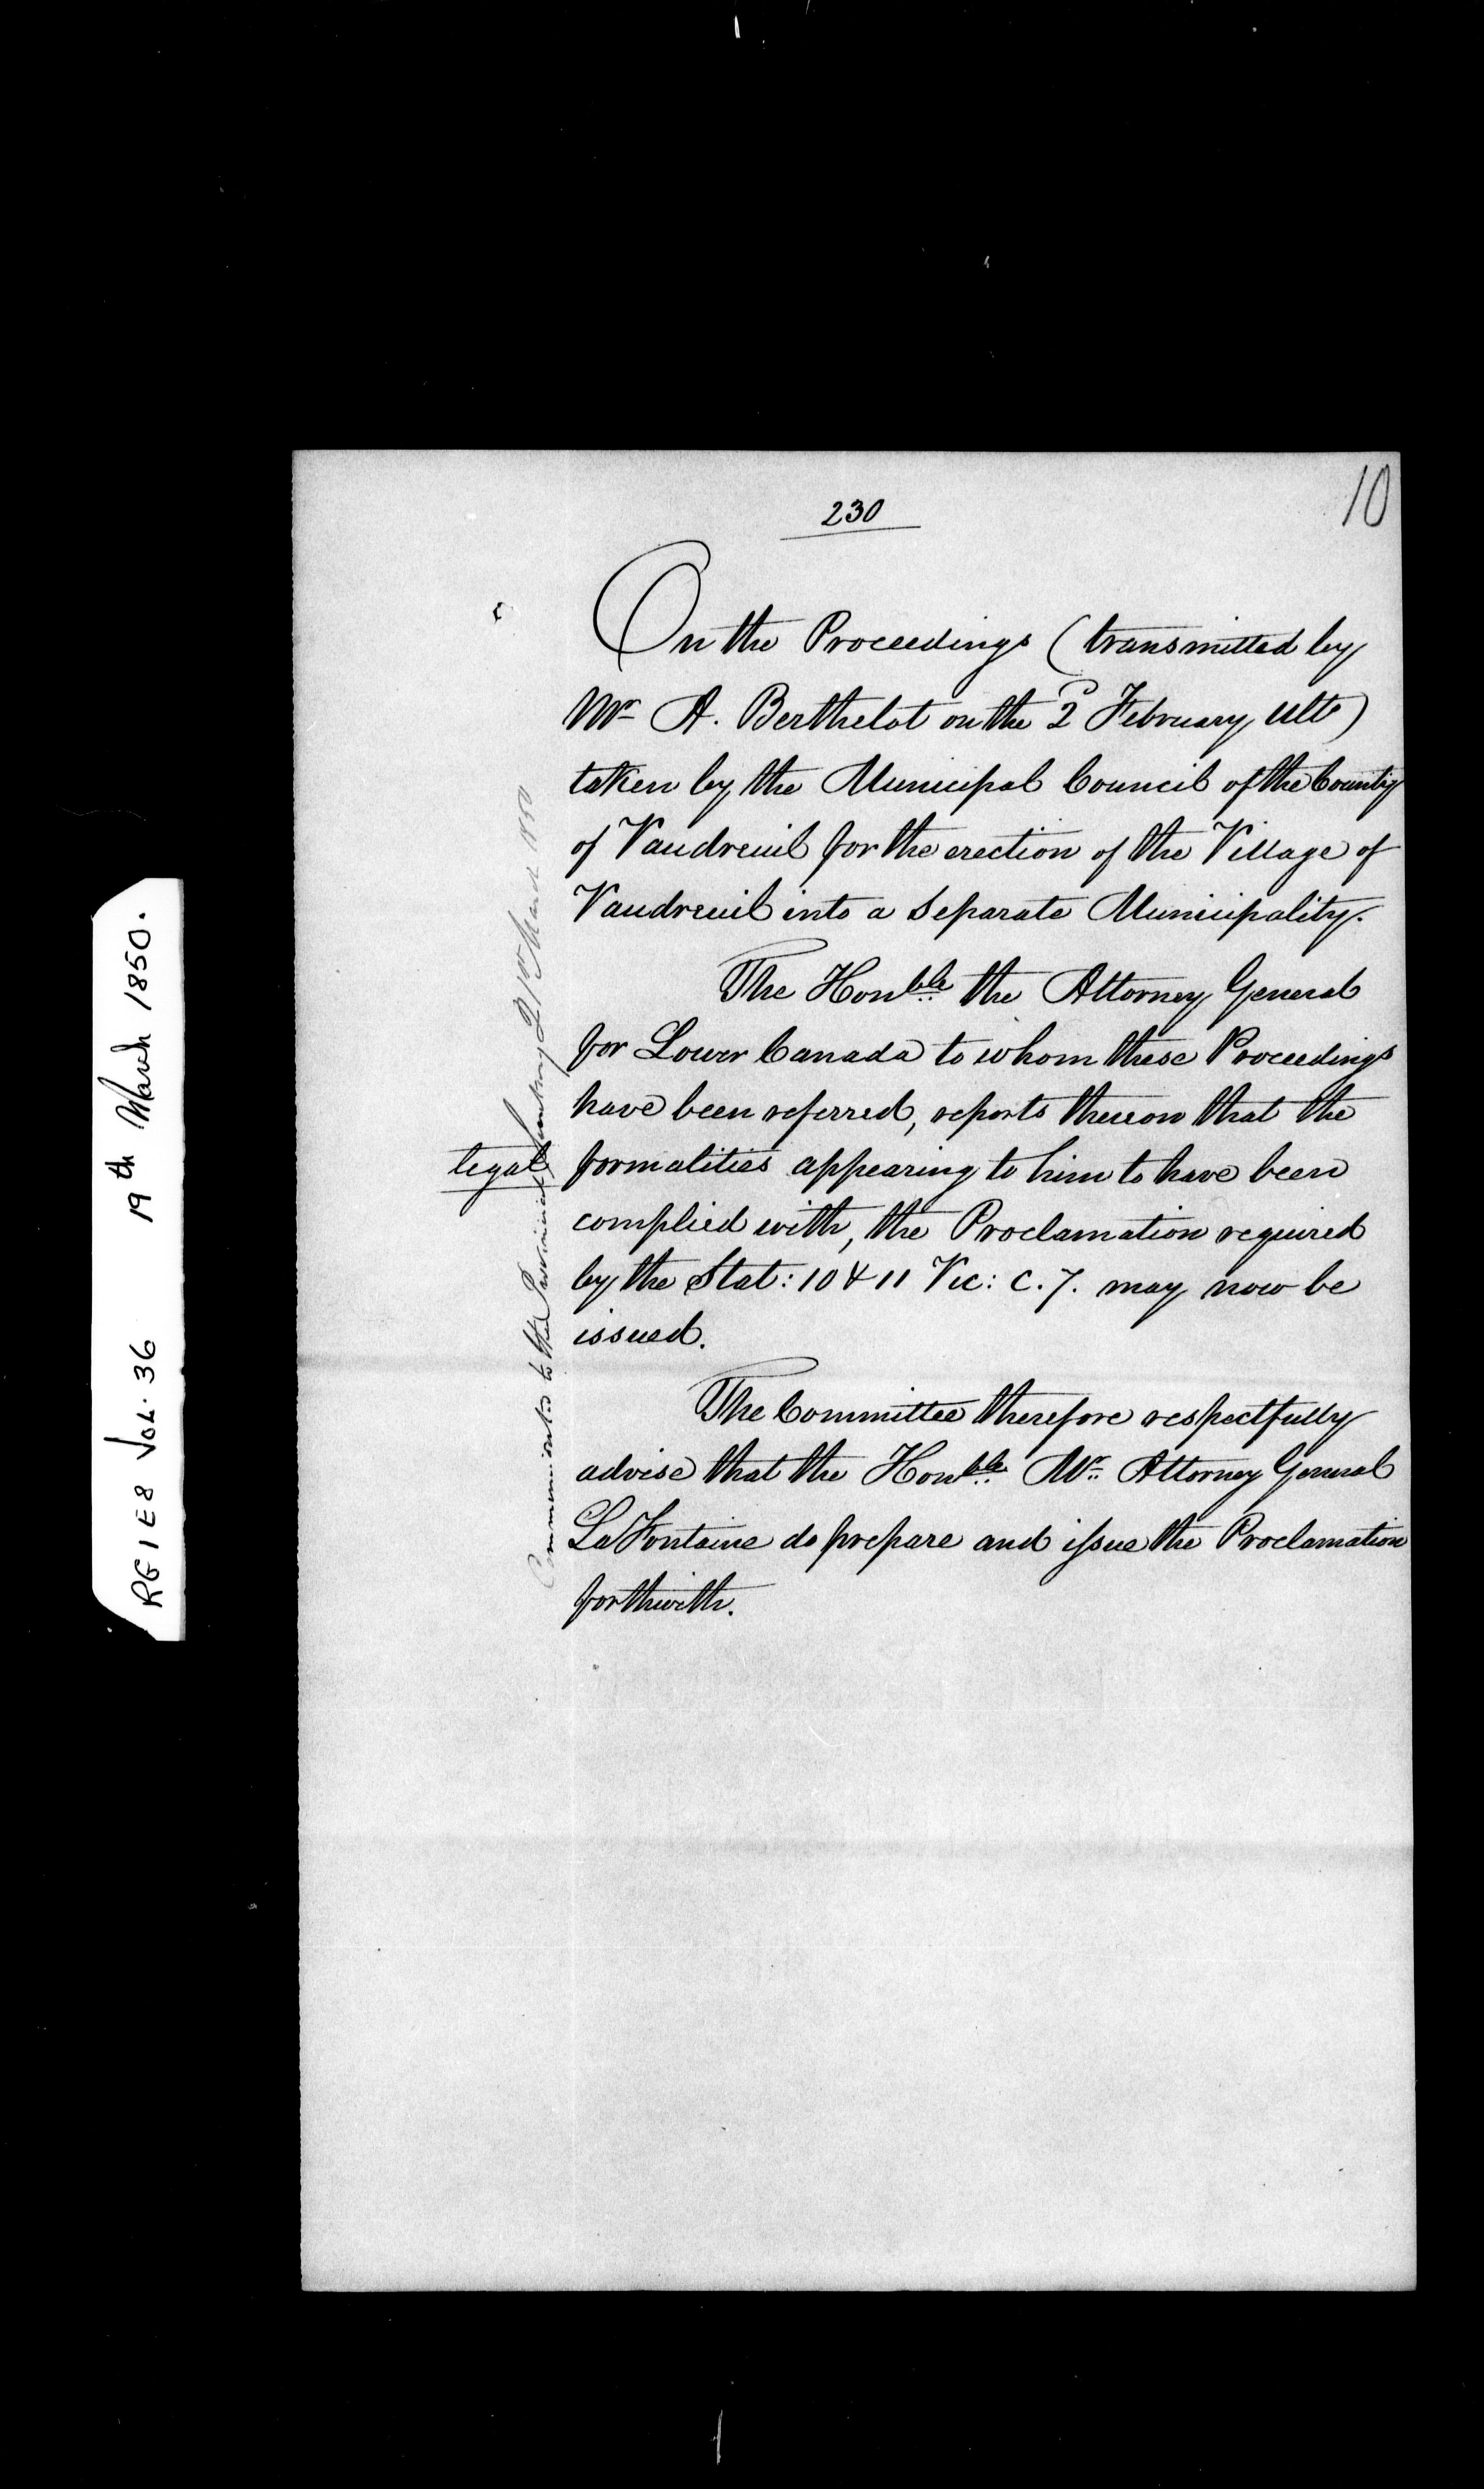 230
10
On the Proceedings (transmitted by
Mr A. Berthelot on the 2d February ulto)
taken by the Municipal Council of the County
of Vaudreuil for the erection of the Village of
Vaudreuil into a Separate Municipality.
The Honble the Attorney General
for Lower Canada to whom these Proceedings
have been referred, reports thereon that the
legal formalities appearing to him to have been
complied with, the Proclamation required
by the Stat: 10 & 11 Vic: C. 7. may now be
issued.
The Committee therefore respectfully
advise that the Honble Mr. Attorney General
LaFontaine do prepare and issue the Proclamation
forthwith.
Communicated to the Provincial Secretary 21st March 1850
RG 1 E8 Vol. 36 19th March 1850.